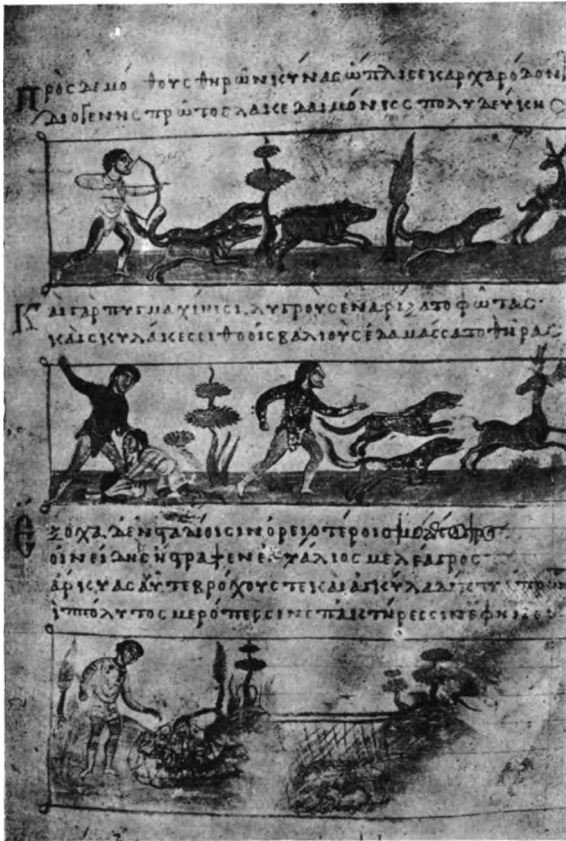 Πρὸς δὲ μόθους θηρῶν κύνας ὥπλισε καρχαρόδον
διογενης πρῶτος λακεδαιμόνιος πολυδεύκης
Καὶ γὰρ πυγμαχίηισι λυγροὺς ἐναρίξατο φῶτας·
καὶ σκυλάκεσσι θοοῖς βαλιοὺς ἐδαμάσσατο θῆρας·
Ἔξοχα δ' ἐν σταδίοισιν ὀρειοτέροισι
οἰνείδης ἤστραψεν ἐνυάλιος μελέαγρος·
ἄρκυας αὖτε βρόχους τε καὶ ἀγκύλα δίκτυα πρῶ
ἱππόλυτος μερόπεσσιν ἐπακτήρεσσιν ἔφηνεν